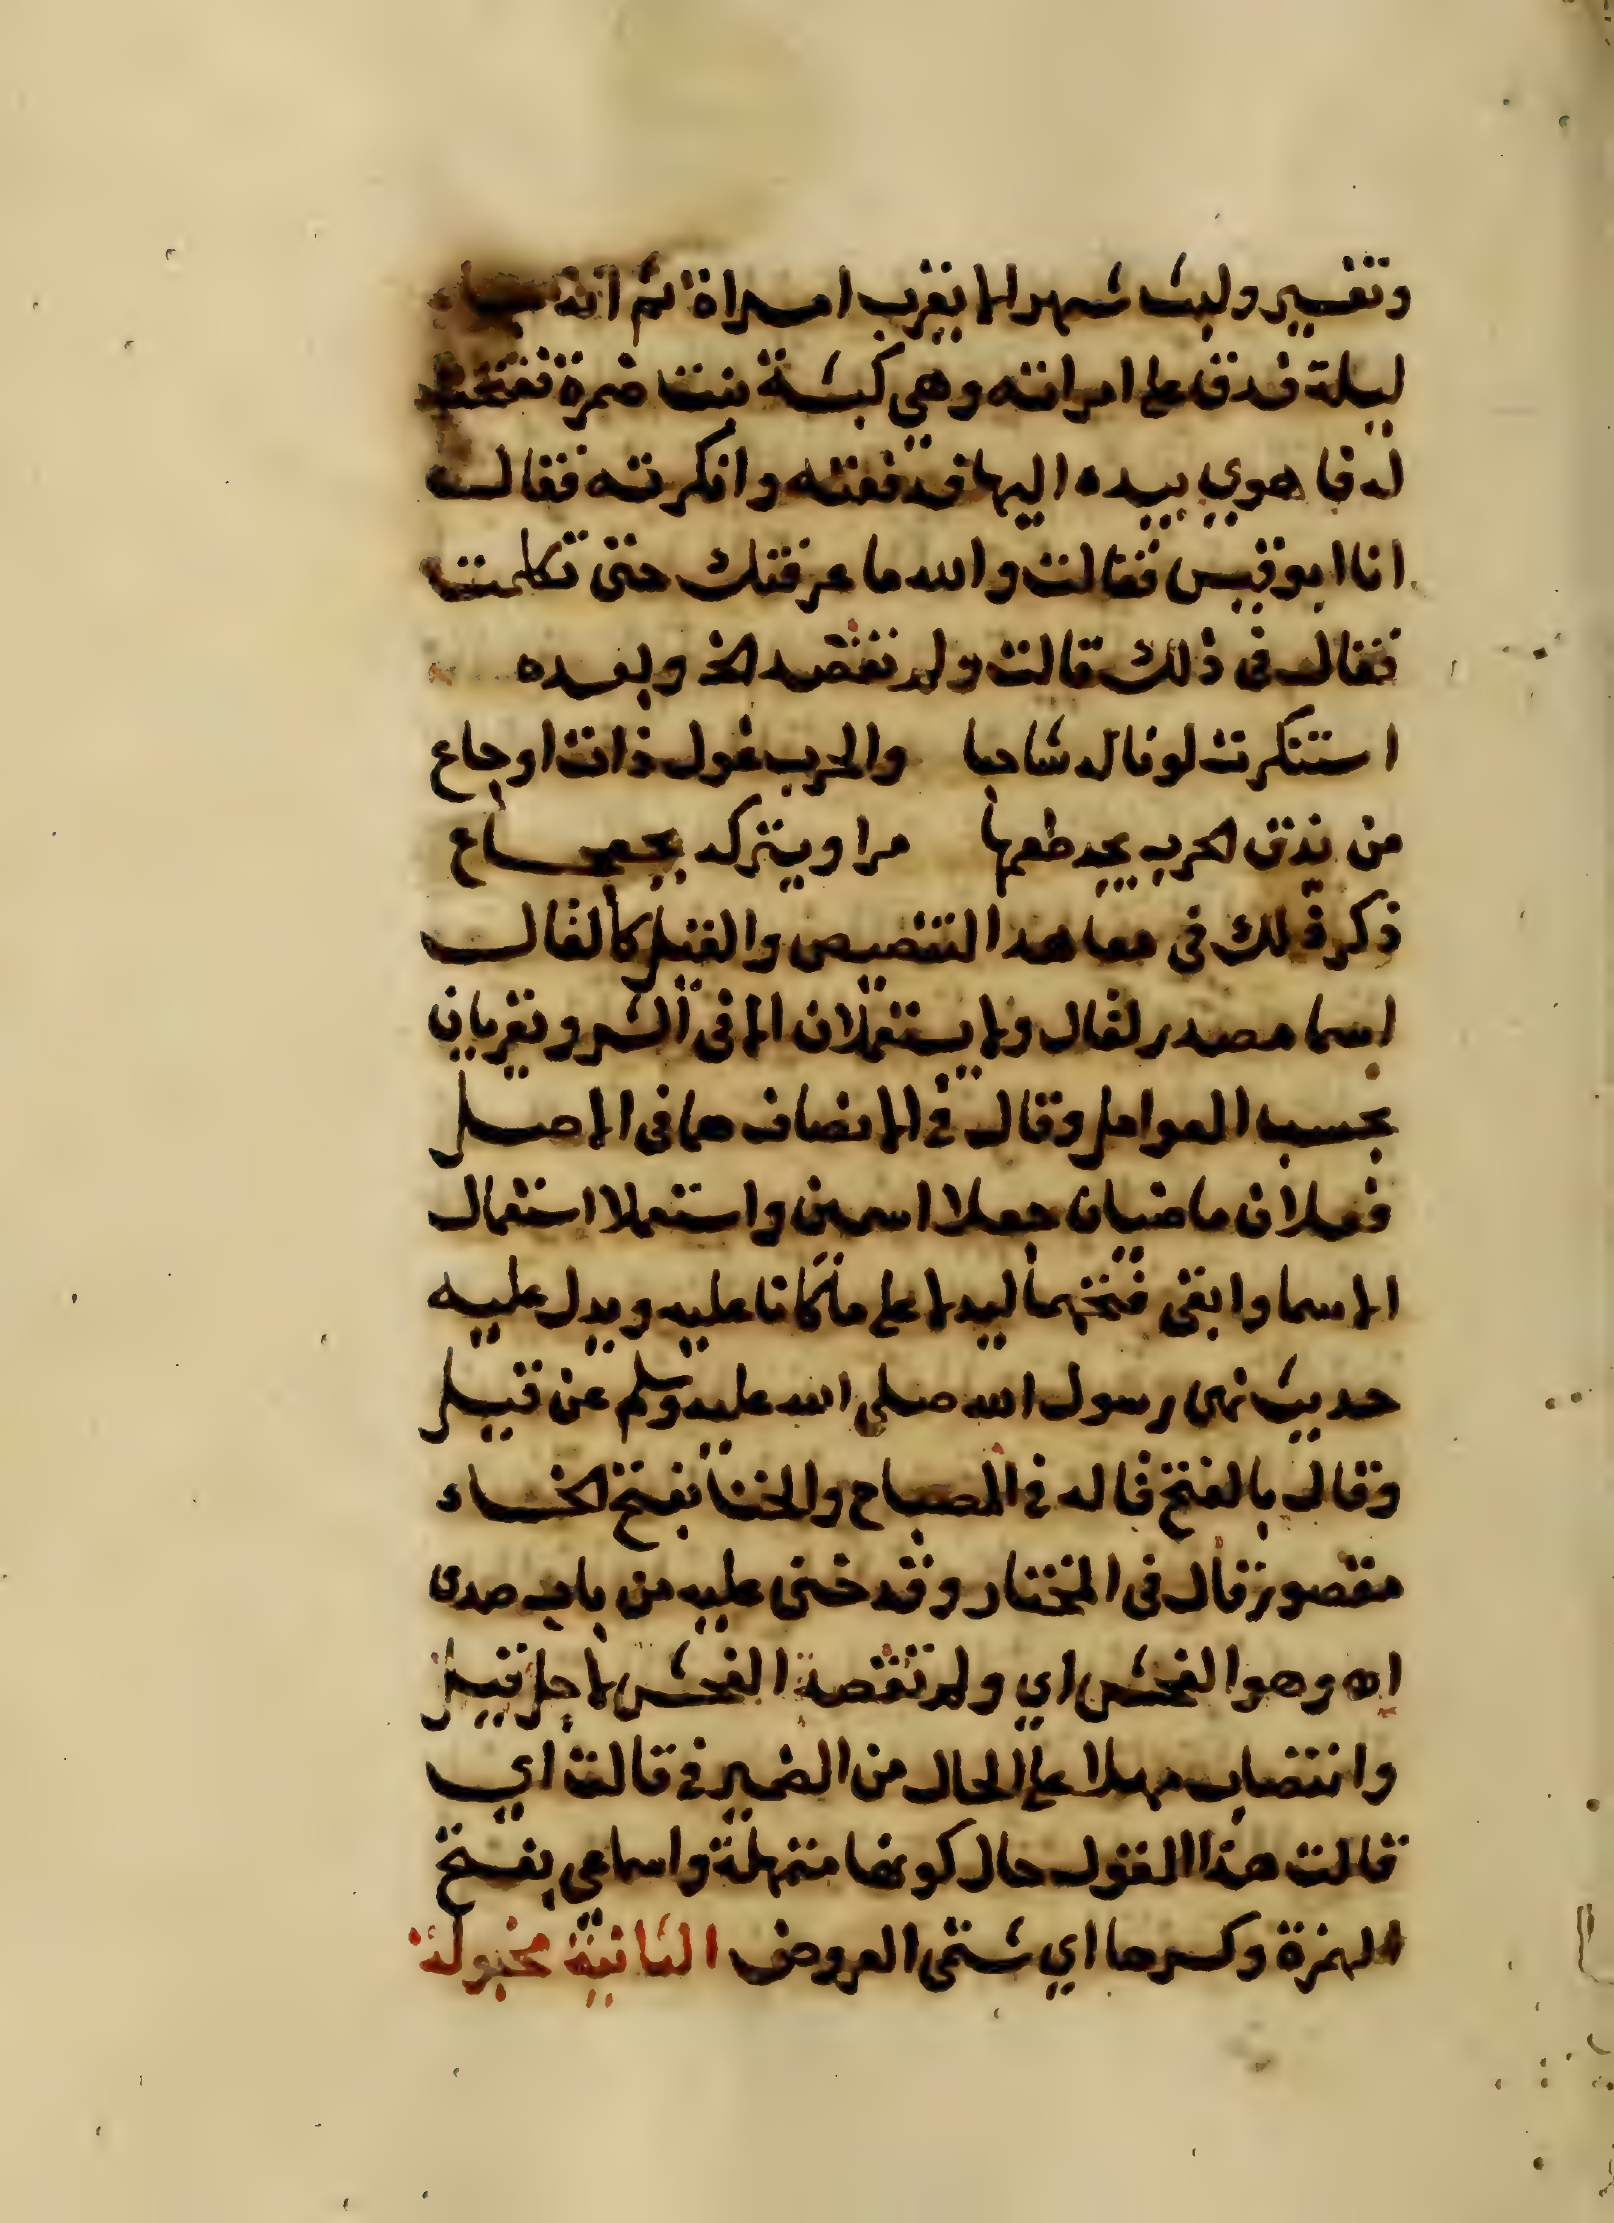 وتغسير ولبث شهرا لا يقرب امراة ثم انه جاء
ليلة فدق على امراته وهي كبشة بنت ضمرة ففتحت
له فاهوي بيده اليها فدفعته وانكرته فقال
انا ابو قيس فقالت والله ما عرفتك حتى تكلمت
فقال في ذلك قالت ولم تقصد الخ وبعده
استنكرت لونا له شاحبا والحرب غول ذات اوجاع
من يذق الحرب يجد طعمها مرا ويتركه بجعجاع
ذكر ذلك في معاهد التنصيص والقيل كالقال
اسما مصدر لقال ولا يستعملان الا في الشر ويعربان
بحسب العوامل وقال في الانصاف هما في الاصل
فعلان ماضيان جعلا اسمين واستعملا استعمال
الاسما وابقى فتحهما ليدلا على ما كانا عليه ويدل عليه
حديث نهى رسول الله صلى الله عليه وسلم عن قيل
وقال بالفتح قاله في المصباح والخنا بفتح الخاء
مقصور قال في المختار وقد خنى عليه من باب صدى
اه وهو الفحش اي ولم تقصد الفحش لاجل قيل
وانتصاب مهلا على الحال من الضمير في قالت اي
قالت هذا القول حال كونها متمهلة واسماعي بفتح
الهمزة وكسرها اي شتمى العروض الثانية مخبولة